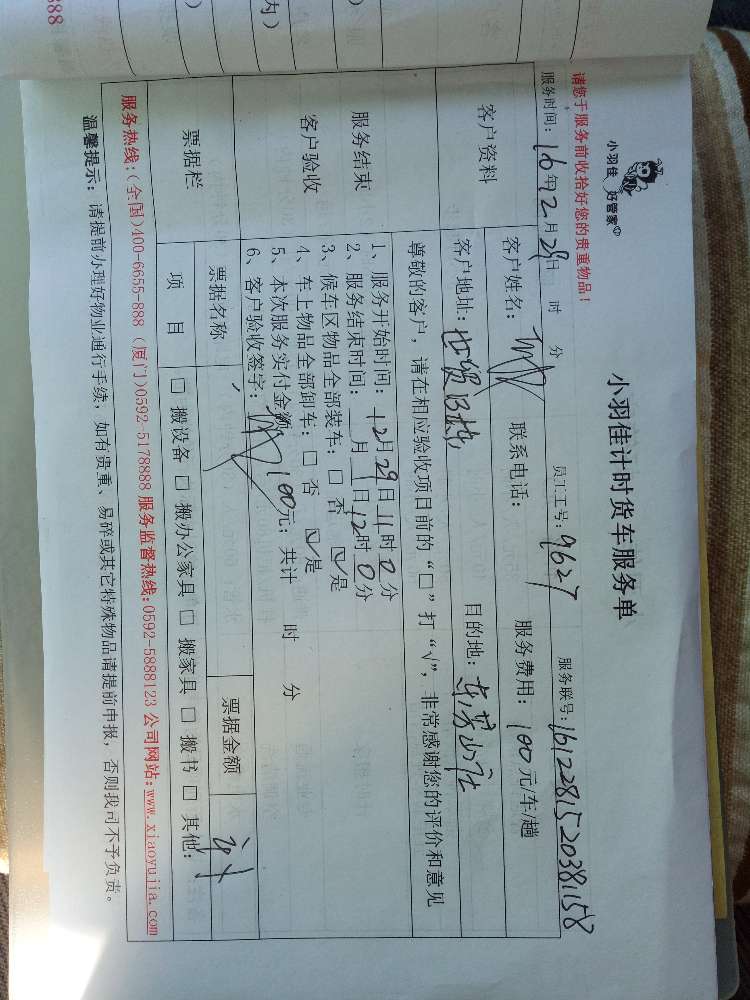 小羽佳 好管家
小羽佳计时货车服务单
请您于服务前收拾好您的贵重物品！
服务时间：16年12月29日 时 分 员工工号：9627 服务联号：161228152038158
客户资料
客户姓名： 联系电话： 服务费用：100元/车/趟
客户地址： 目的地：
尊敬的客户，请在相应验收项目前的“□”打“√”，非常感谢您的评价和意见
服务结束
客户验收
1、服务开始时间：12月29日11时0分
2、服务结束时间： 月 日12时0分
3、候车区物品全部装车：□ 否 ☑是
4、车上物品全部卸车：□ 否 ☑是
5、本次服务实付金额 100元；共计 时 分
6、客户验收签字：
票据栏
票据名称 票据金额
项 目 □ 搬设备 □ 搬办公家具 □ 搬家具 □ 搬书 □ 其他：
服务热线：(全国)400-6655-888 (厦门)0592-5178888 服务监督热线：0592-5888123 公司网站：www.xiaoyujia.com
温馨提示：请提前办理好物业通行手续，如有贵重、易碎或其它特殊物品请提前申报，否则我司不予负责。
内）
888